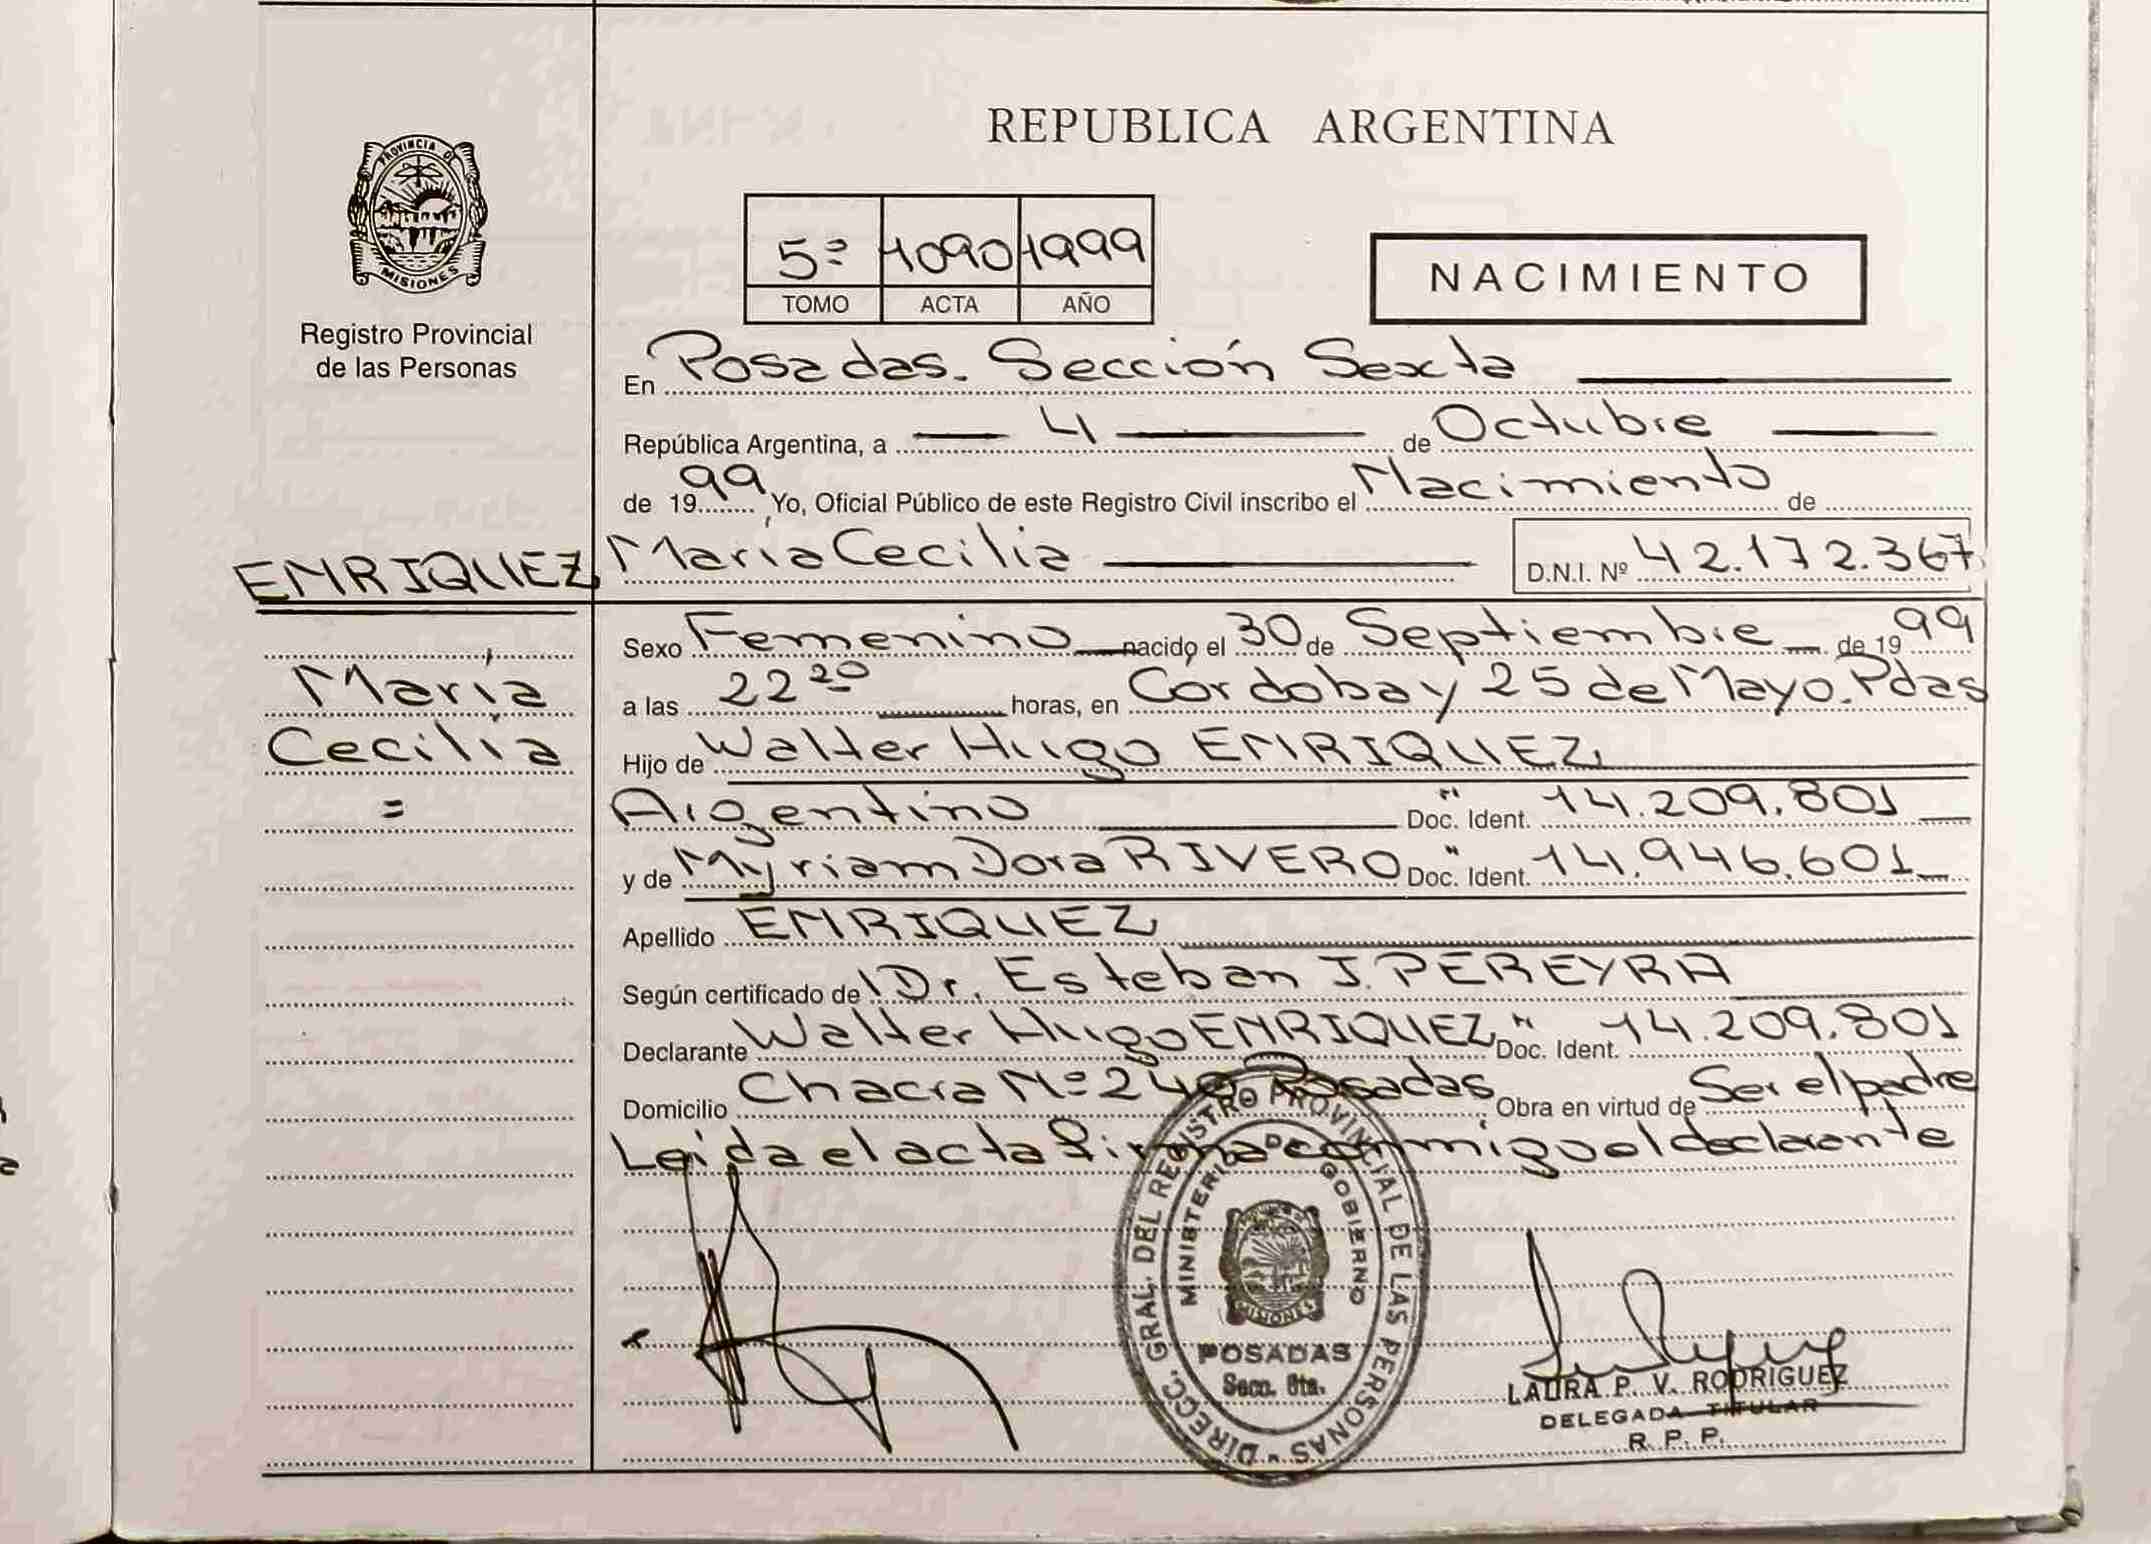 REPUBLICA ARGENTINA
PROVINCIA DE MISIONES
Registro Provincial
de las Personas
5º 1090 1999
TOMO ACTA AÑO
NACIMIENTO
En Posadas. Sección Sexta
República Argentina, a 4 de Octubre
de 1999 Yo, Oficial Público de este Registro Civil inscribo el Nacimiento de
ENRIQUEZ María Cecilia D.N.I. Nº 42.172.367
María
Cecilia
=
Sexo Femenino nacido el 30 de Septiembre de 1999
a las 22 20 horas, en Cordoba y 25 de Mayo. Pdas
Hijo de Walter Hugo ENRIQUEZ
Argentino Doc. Ident. 14.209.801
y de Myriam Dora RIVERO Doc. Ident. 14.946.601
Apellido ENRIQUEZ
Según certificado de Dr. Esteban J. PEREYRA
Declarante Walter Hugo ENRIQUEZ Doc. Ident. 14.209.801
Domicilio Chacra Nº Posadas Obra en virtud de Ser el padre
Leida el acta firma conmigo el declarante
DIRECC. GRAL. DEL REGISTRO PROVINCIAL DE LAS PERSONAS
MINISTERIO DE GOBIERNO
MISIONES
POSADAS
Secc. 6ta.
LAURA P. V. RODRIGUEZ
DELEGADA TITULAR
R. P. P.